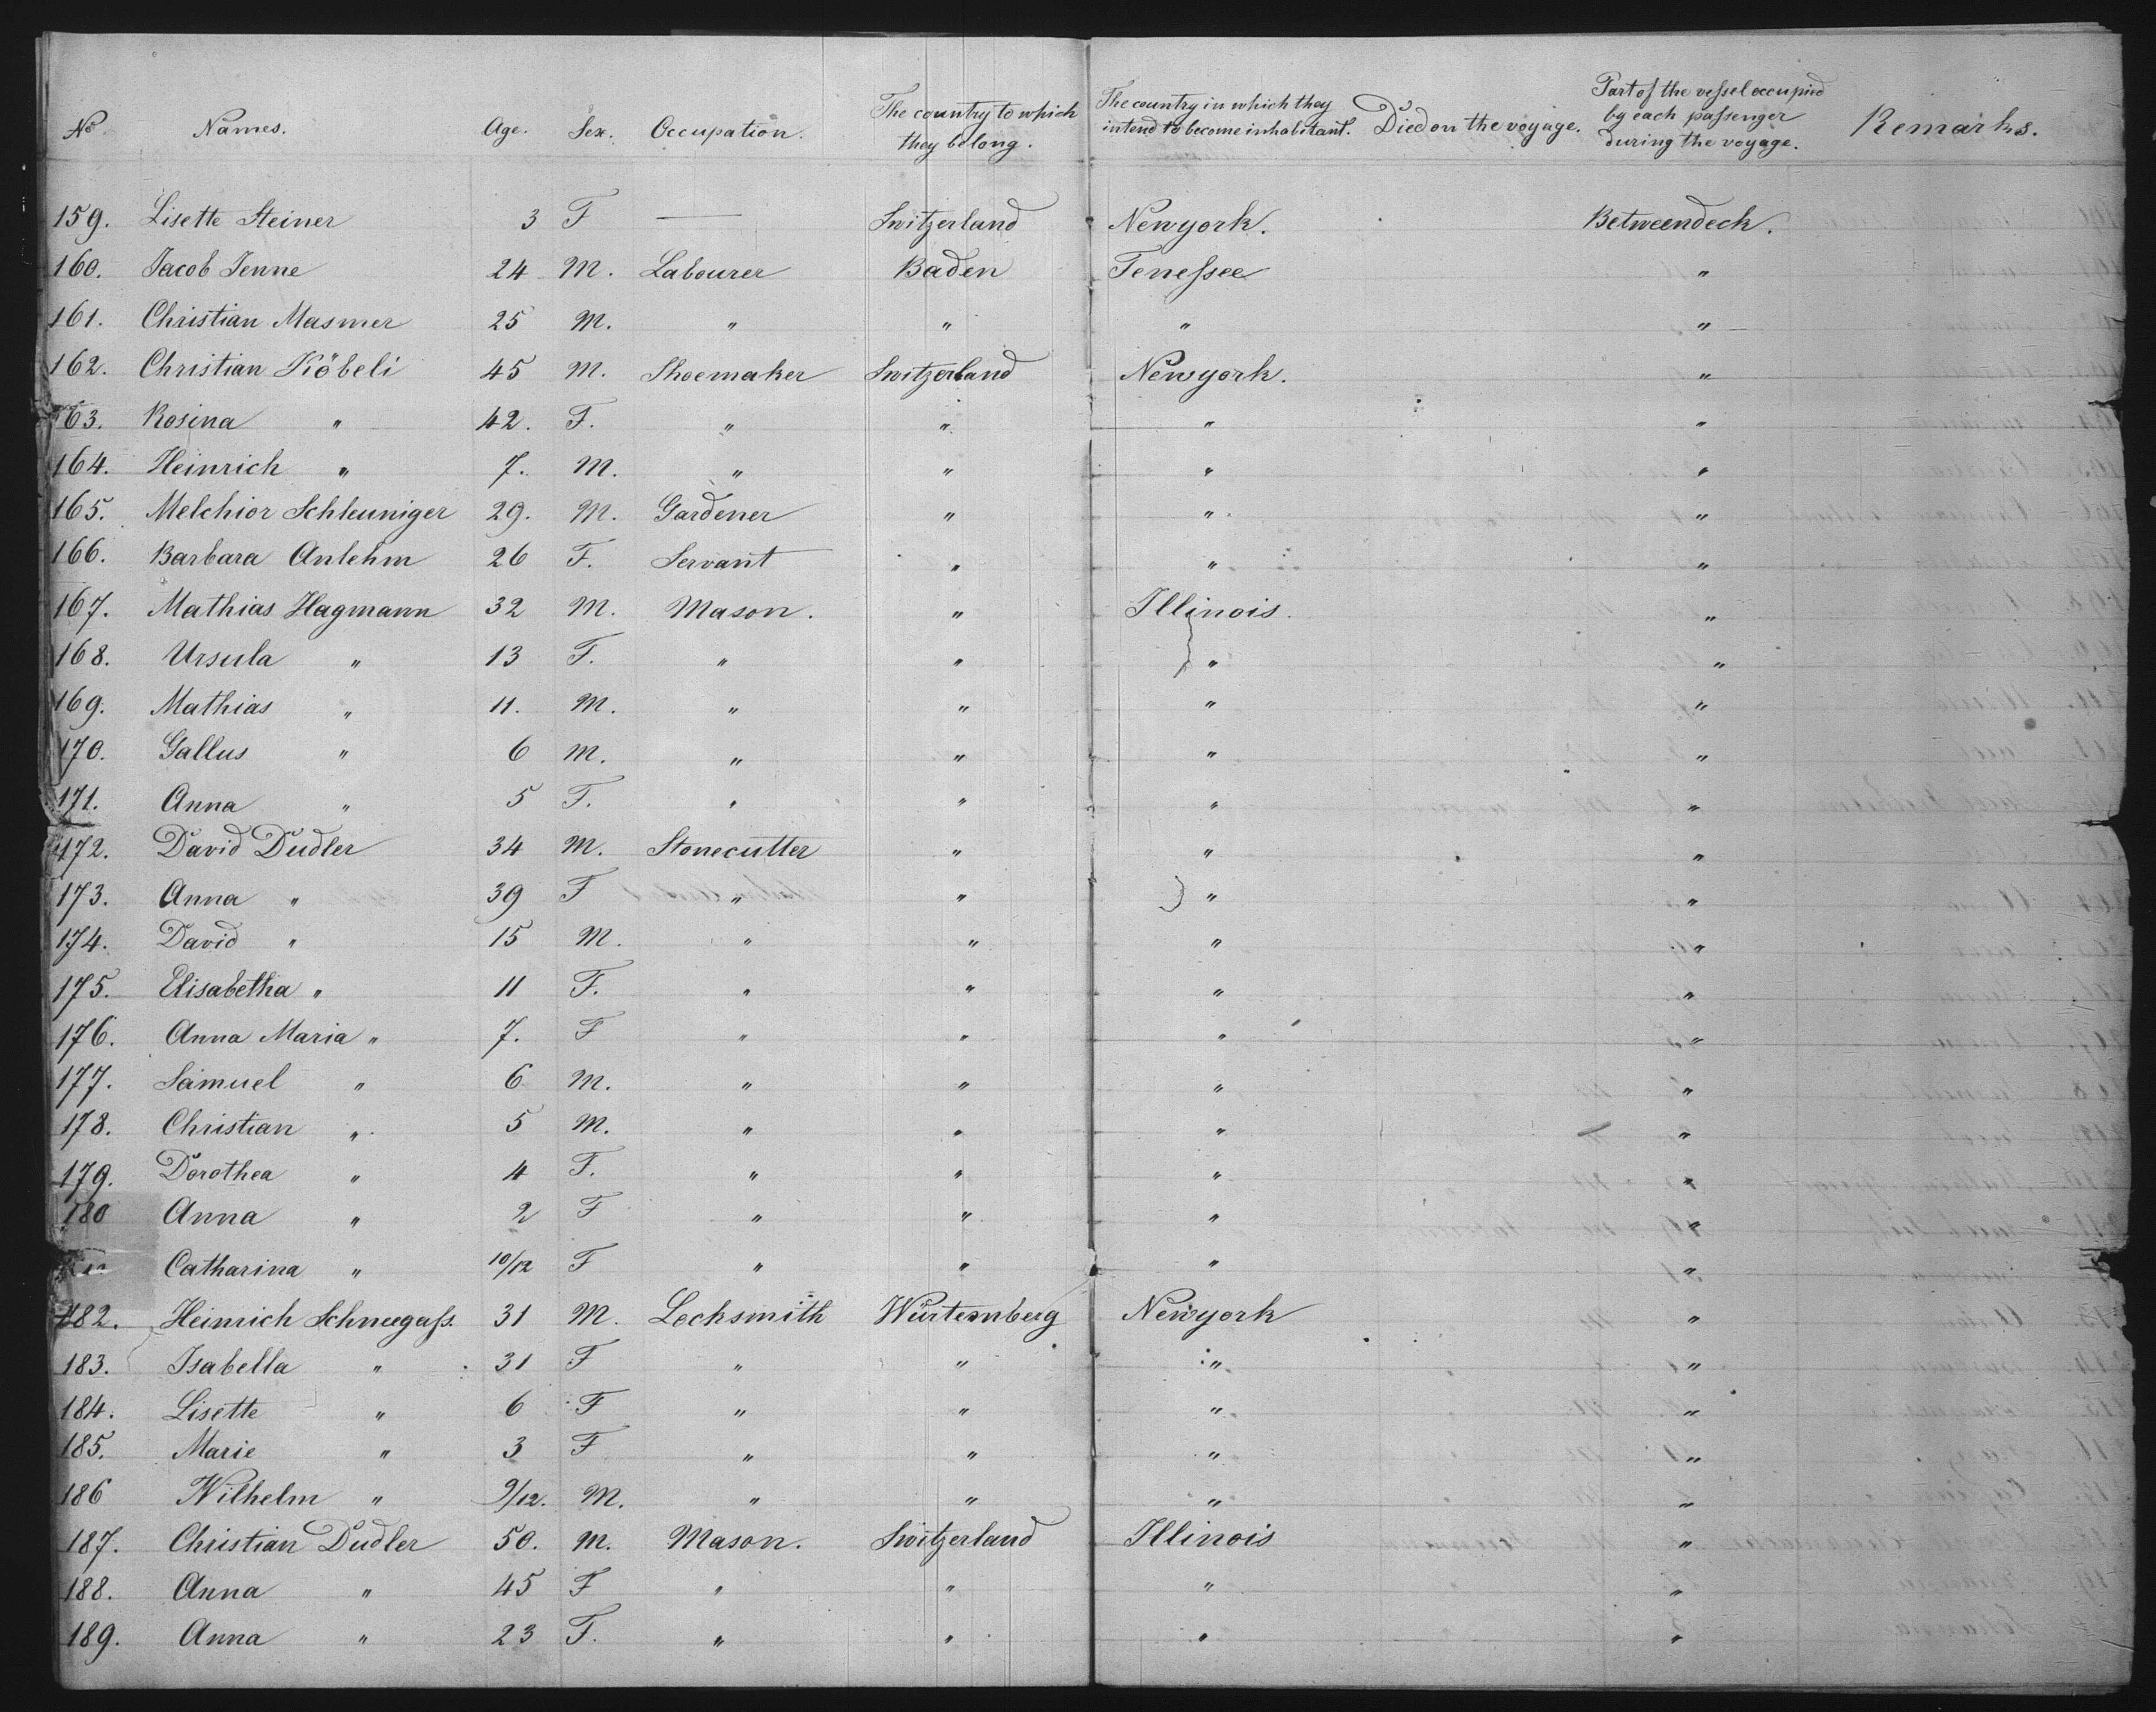 No. Names. Age. Sex. Occupation. The country to which they belong. The country in which they intend to become inhabitant. Died on the voyage. Part of the vessel occupied by each passenger during the voyage. Remarks.
159. Lisette Steiner 3 F — Switzerland Newyork. Betweendeck.
160. Jacob Jenne 24 M. Labourer Baden Tenessee "
161. Christian Masmer 25 M. " " " "
162. Christian Köbeli 45 M. Shoemaker Switzerland Newyork. "
163. Rosina " 42. F. " " " "
164. Heinrich " 7. M. " " " "
165. Melchior Schleuniger 29. M. Gardener " " "
166. Barbara Anlehm 26 F. Servant " " "
167. Mathias Hagmann 32 M. Mason. " Illinois. "
168. Ursula " 13 F. " " " "
169. Mathias " 11. M. " " " "
170. Gallus " 6 M. " " " "
171. Anna " 5 F. " " " "
172. David Dudler 34 M. Stonecutter " " "
173. Anna " 39 F " " " "
174. David " 15 M. " " " "
175. Elisabetha " 11 F. " " " "
176. Anna Maria " 7. F " " " "
177. Samuel " 6 M. " " " "
178. Christian " 5 M. " " " "
179. Dorothea " 4 F. " " " "
180 Anna " 2 F " " " "
Catharina " 10/12 F " " " "
182. Heinrich Schneegass. 31 M. Locksmith Würtemberg Newyork "
183. Isabella " 31 F " " " "
184. Lisette " 6 F " " " "
185. Marie " 3 F " " " "
186 Wilhelm " 9/12. M. " " " "
187. Christian Dudler 50. M. Mason. Switzerland Illinois "
188. Anna " 45 F " " " "
189. Anna " 23 F. " " " "